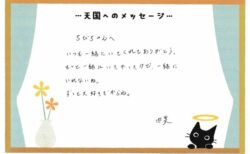 …天国へのメッセージ…
ちびちゃんへ
いつも一緒にいてくれてありがとう。
もっと一緒にいたかったけど、一緒に
いれないね。
ずっと大好きだからね。